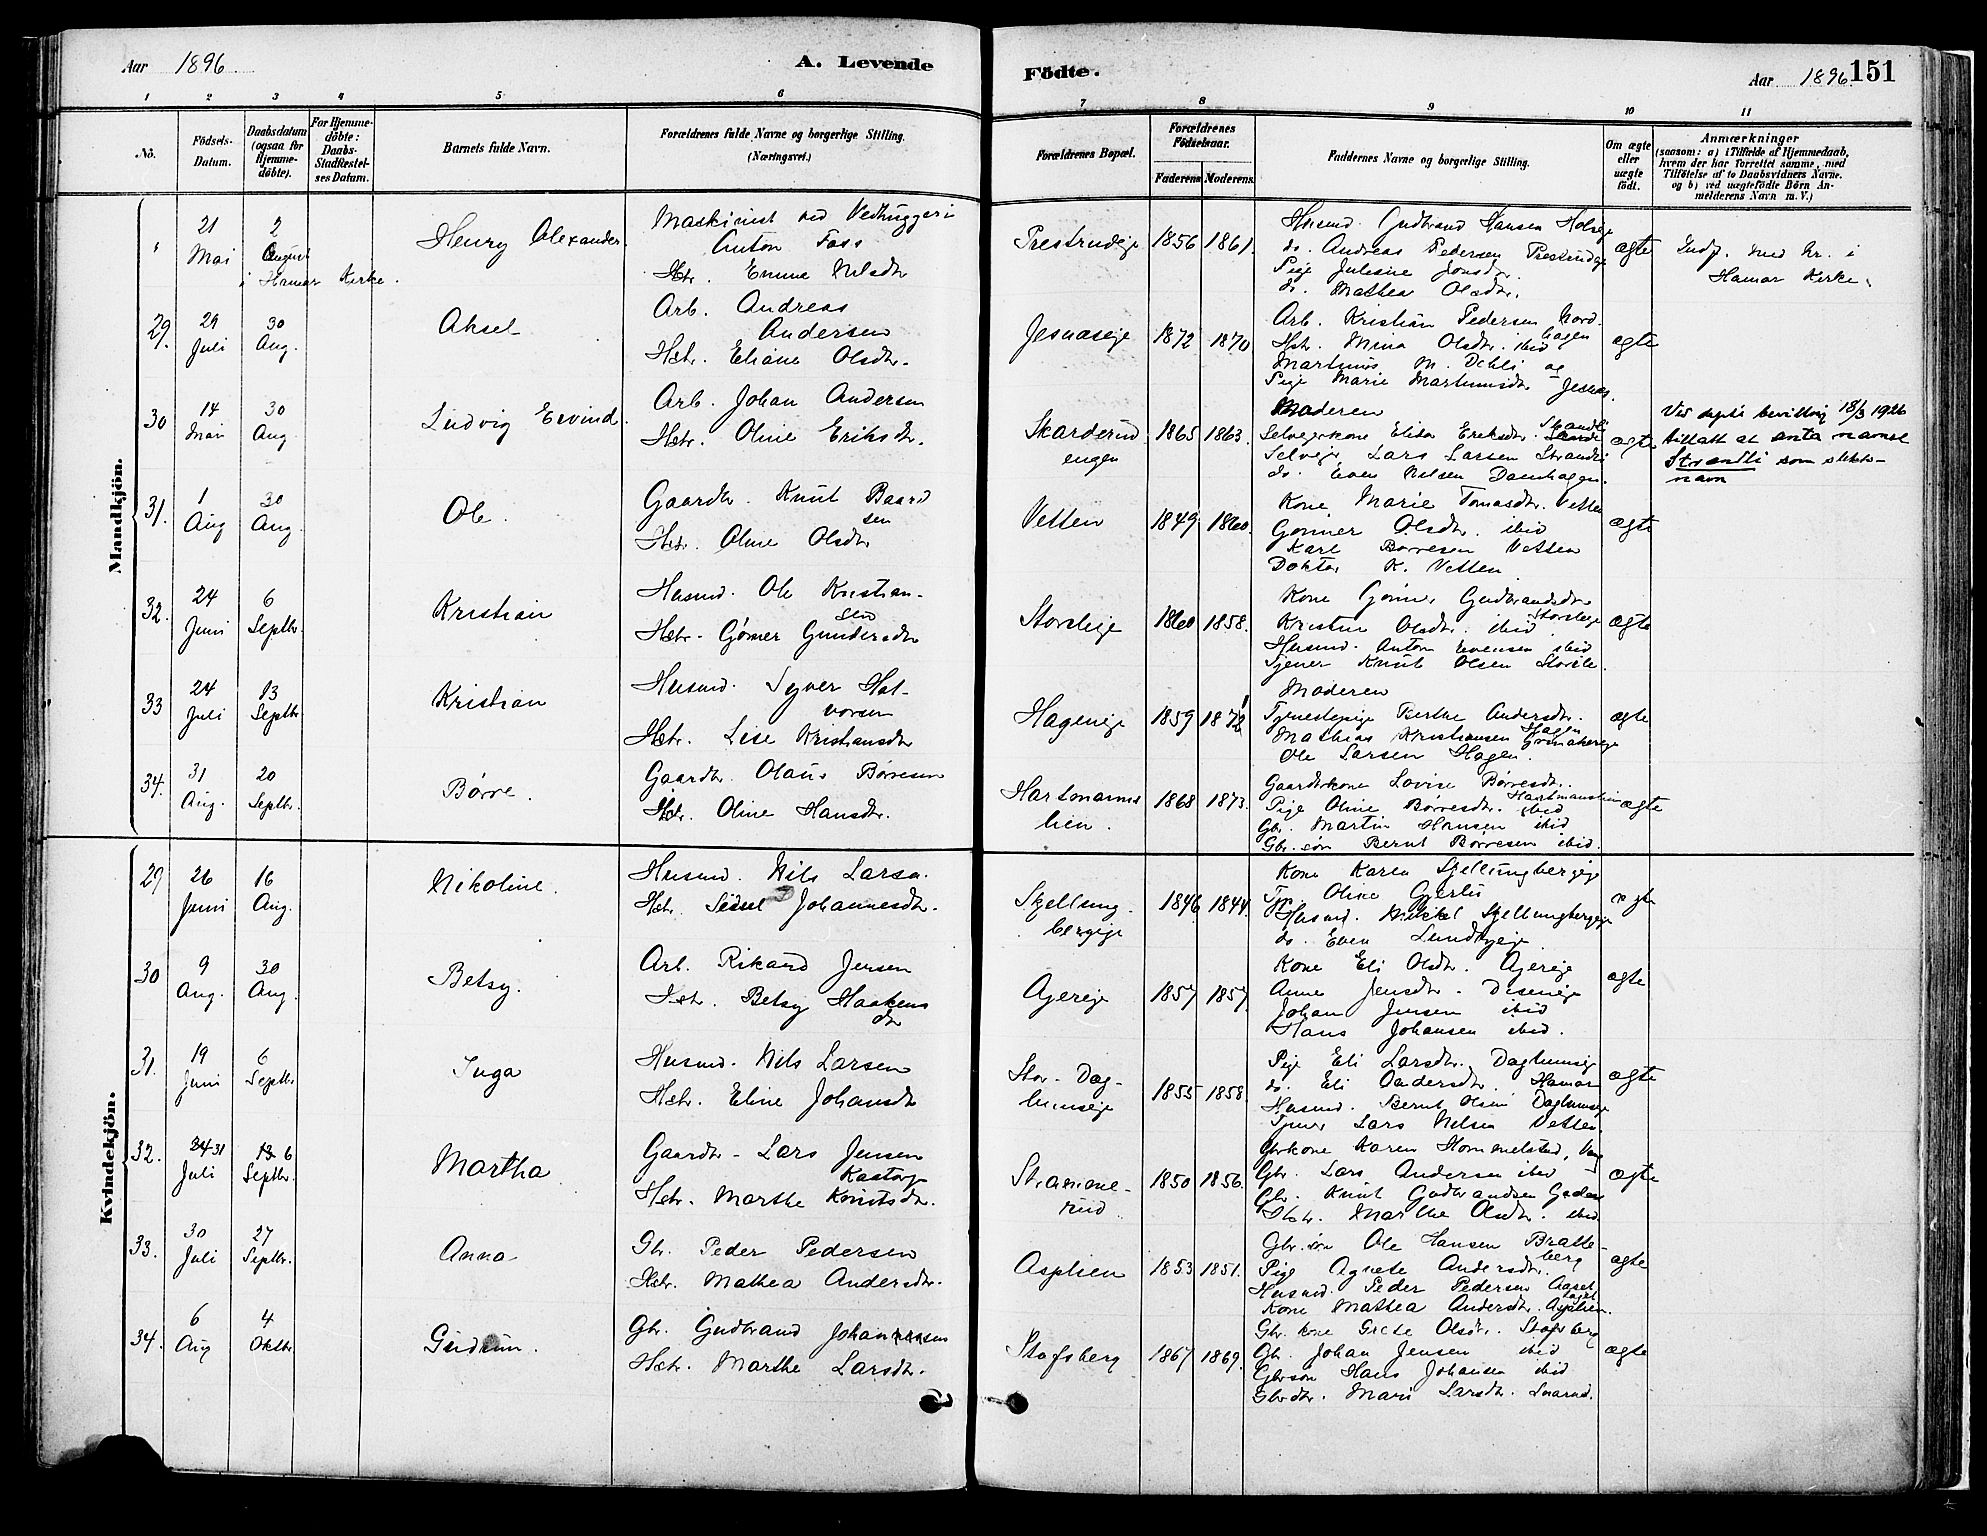 Aar 1896
A. Levende
Födte.
Aar 1896
151
1 2 3 4 5 6 7 8 9 10 11
No.
Födsels-
Datum.
Daabsdatum
(ogsaa for
Hjemme-
döbte).
For Hjemme-
döbte:
Daabs-
Stadfæstel-
ses Datum.
Barnets fulde Navn.
Forældrenes fulde Navne og borgerlige Stilling.
(Næringsvei.)
Forældrenes Bopæl.
Forældrenes
Födselsaar.
Faderens Moderens.
Faddernes Navne og borgerlige Stilling.
Om ægte
eller
uægte
födt.
Anmærkninger
(saasom: a) i Tilfælde af Hjemmedaab,
hvem der har forrettet samme, med
Tilföielse af to Daabsvidners Navne.
og b) ved uægtefödte Börn An-
melderens Navn m. V.)
Mandkjön.
21 Mai
2 August
i Hamar Kirke.
Henry Alexander.
Maskinist ved Vedhuggeri
Anton Foss
Hstr. Emma Nilsdtr
Prestrudeje
1856 1861.
Husmd. Gudbrand Hansen
do. Andreas Pedersen Prestrudeje
Pige Juliane Jonsdtr.
do. Mathea Olsdtr.
ægte
Indf. med Nr. i
Hamar Kirke.
29.
29 Juli
30 Aug.
Aksel
Arb. Andreas
Andersen
Hstr. Eliane Olsdtr.
Jesnaseje
1872 1870
Arb. Kristian Pedersen Nord-
hagen
Hstr. Mina Olsdtr. ibid
Martinus M. Dehli og
Pige Marie Martinusdtr Jesnes.
ægte
30
14 Mai
30 Aug.
Ludvig Eivind.
Arb. Johan Andersen
Hstr. Oline Eriksdtr.
Skarderud
engen
1865 1863.
Moderen
Selvejerkone Elisa Eriksdtr. Strandli
Selvejer Lars Larsen Strandli
do. Even Nilsen Damhagen.
ægte
Ved depts bevilling 18/3 1926
tillatt at anta navnet
Strandli som slekts-
navn
31.
1 Aug
30 Aug.
Ole.
Gaardbr. Knut Baard
sen
Hstr. Oline Olsdtr
Vetten
1849 1860.
Kone Marie Tomasdtr. Vetten
Gønner Olsdtr. ibid
Karl Børresen Vetten
Doktor K. Vetten
ægte
32.
24 Juni
6 Septbr.
Kristian
Husmd. Ole Kristian-
sen
Hstr. Gørner Gundersdtr
Storsleije
1860 1858.
Kone Gønner Gudbrandsdtr
Storsleje
Kristin Olsdtr. ibid
Husmd. Anton Evensen ibid
Tjener Knut Olsen Storsle.
ægte
33
24 Juli
13 Septbr.
Kristian
Husmd. Syver Hal-
vorsen
Hstr. Lise Kristiansdtr
Hageneje
1859
Moderen
Tjenestepige Berthe Andersdtr.
Hagen
Mathias Kristiansen Grønakereje
Ole Larsen Hagen.
ægte
34.
31 Aug.
20 Septbr.
Børre.
Gaardbr. Olaus Børresen
Hstr. Oline Hansdtr.
Hartmanns
lien.
1868 1873.
Gaardbrkone Lovise Børresdtr.
Hartmanslien
Pige Oline Børresdtr. ibid
Gbr. Martin Hansen ibid
Gbr. søn Bernt Børresen ibid.
ægte
Kvindekjön.
29
26 Juni
16 Aug.
Nikoline.
Husmd. Nils Larsn.
Hstr. Sidsel Johannesdtr.
Skjellung-
bergeje
1846 1844.
Kone Karen Skjellungbergeje
Tj. Oline Gjerlu
Husmd. Mikkel Skjellungbergeje
do. Even Lundbyeje
ægte
30
9 Aug.
30 Aug.
Betsy.
Arb. Rikard Jensen
Hstr. Betsy Haakens
dtr
Ajereje
1857 1857.
Kone Eli Olsdtr. Ajereje
Anne Jensdtr. Diseneje
Johan Jensen ibid
Hans Johansen ibid.
ægte
31.
19 Juni
6 Septbr
Inga
Husmd. Nils Larsen
Hstr. Eline Johansdtr
Stor-Dag-
lumseje
1855 1858
Pige Eli Larsdtr. Daglumseje
do. Eli Andersdtr. Hamar
Husmd. Bernt Olsen Daglumseje
Tjener Lars Nilsen Vetten.
ægte
32.
24 31 Juli
13 6 Septbr.
Martha
Gaardbr - Lars Jensen
Kastorp
Hstr. Marthe Knutsdtr.
Stramme-
rud
1850 1856.
Gbrkone Karen Hommelstad, Vang
Gbr. Lars Andersen ibid
Gbr. Knut Gudbrandsen
Hstr. Marthe Olsdtr. ibid
ægte
33.
30 Juli
27 Septbr.
Anna
Gbr. Peder Pedersen
Hstr. Mathea Andersdtr.
Asplien
1853 1851.
Gbr. søn Ole Hansen Bratte-
berg
Pige Agnete Andersdtr.
Husmd. Peder Pedersen Aaset
Kone Mathea Andersdtr. Asplien.
ægte
34.
6 Aug
4 Oktbr
Gudrun.
Gbr. Gudbrand Johannesen
Hstr. Marthe Larsdtr.
Stafsberg
1867 1869.
Gbr. kone Grete Olsdtr. Stafsberg
Gbr. Johan Jensen ibid
Gbrsøn Hans Johansen ibid
Gbrdtr. Mari Larsdtr.
ægte